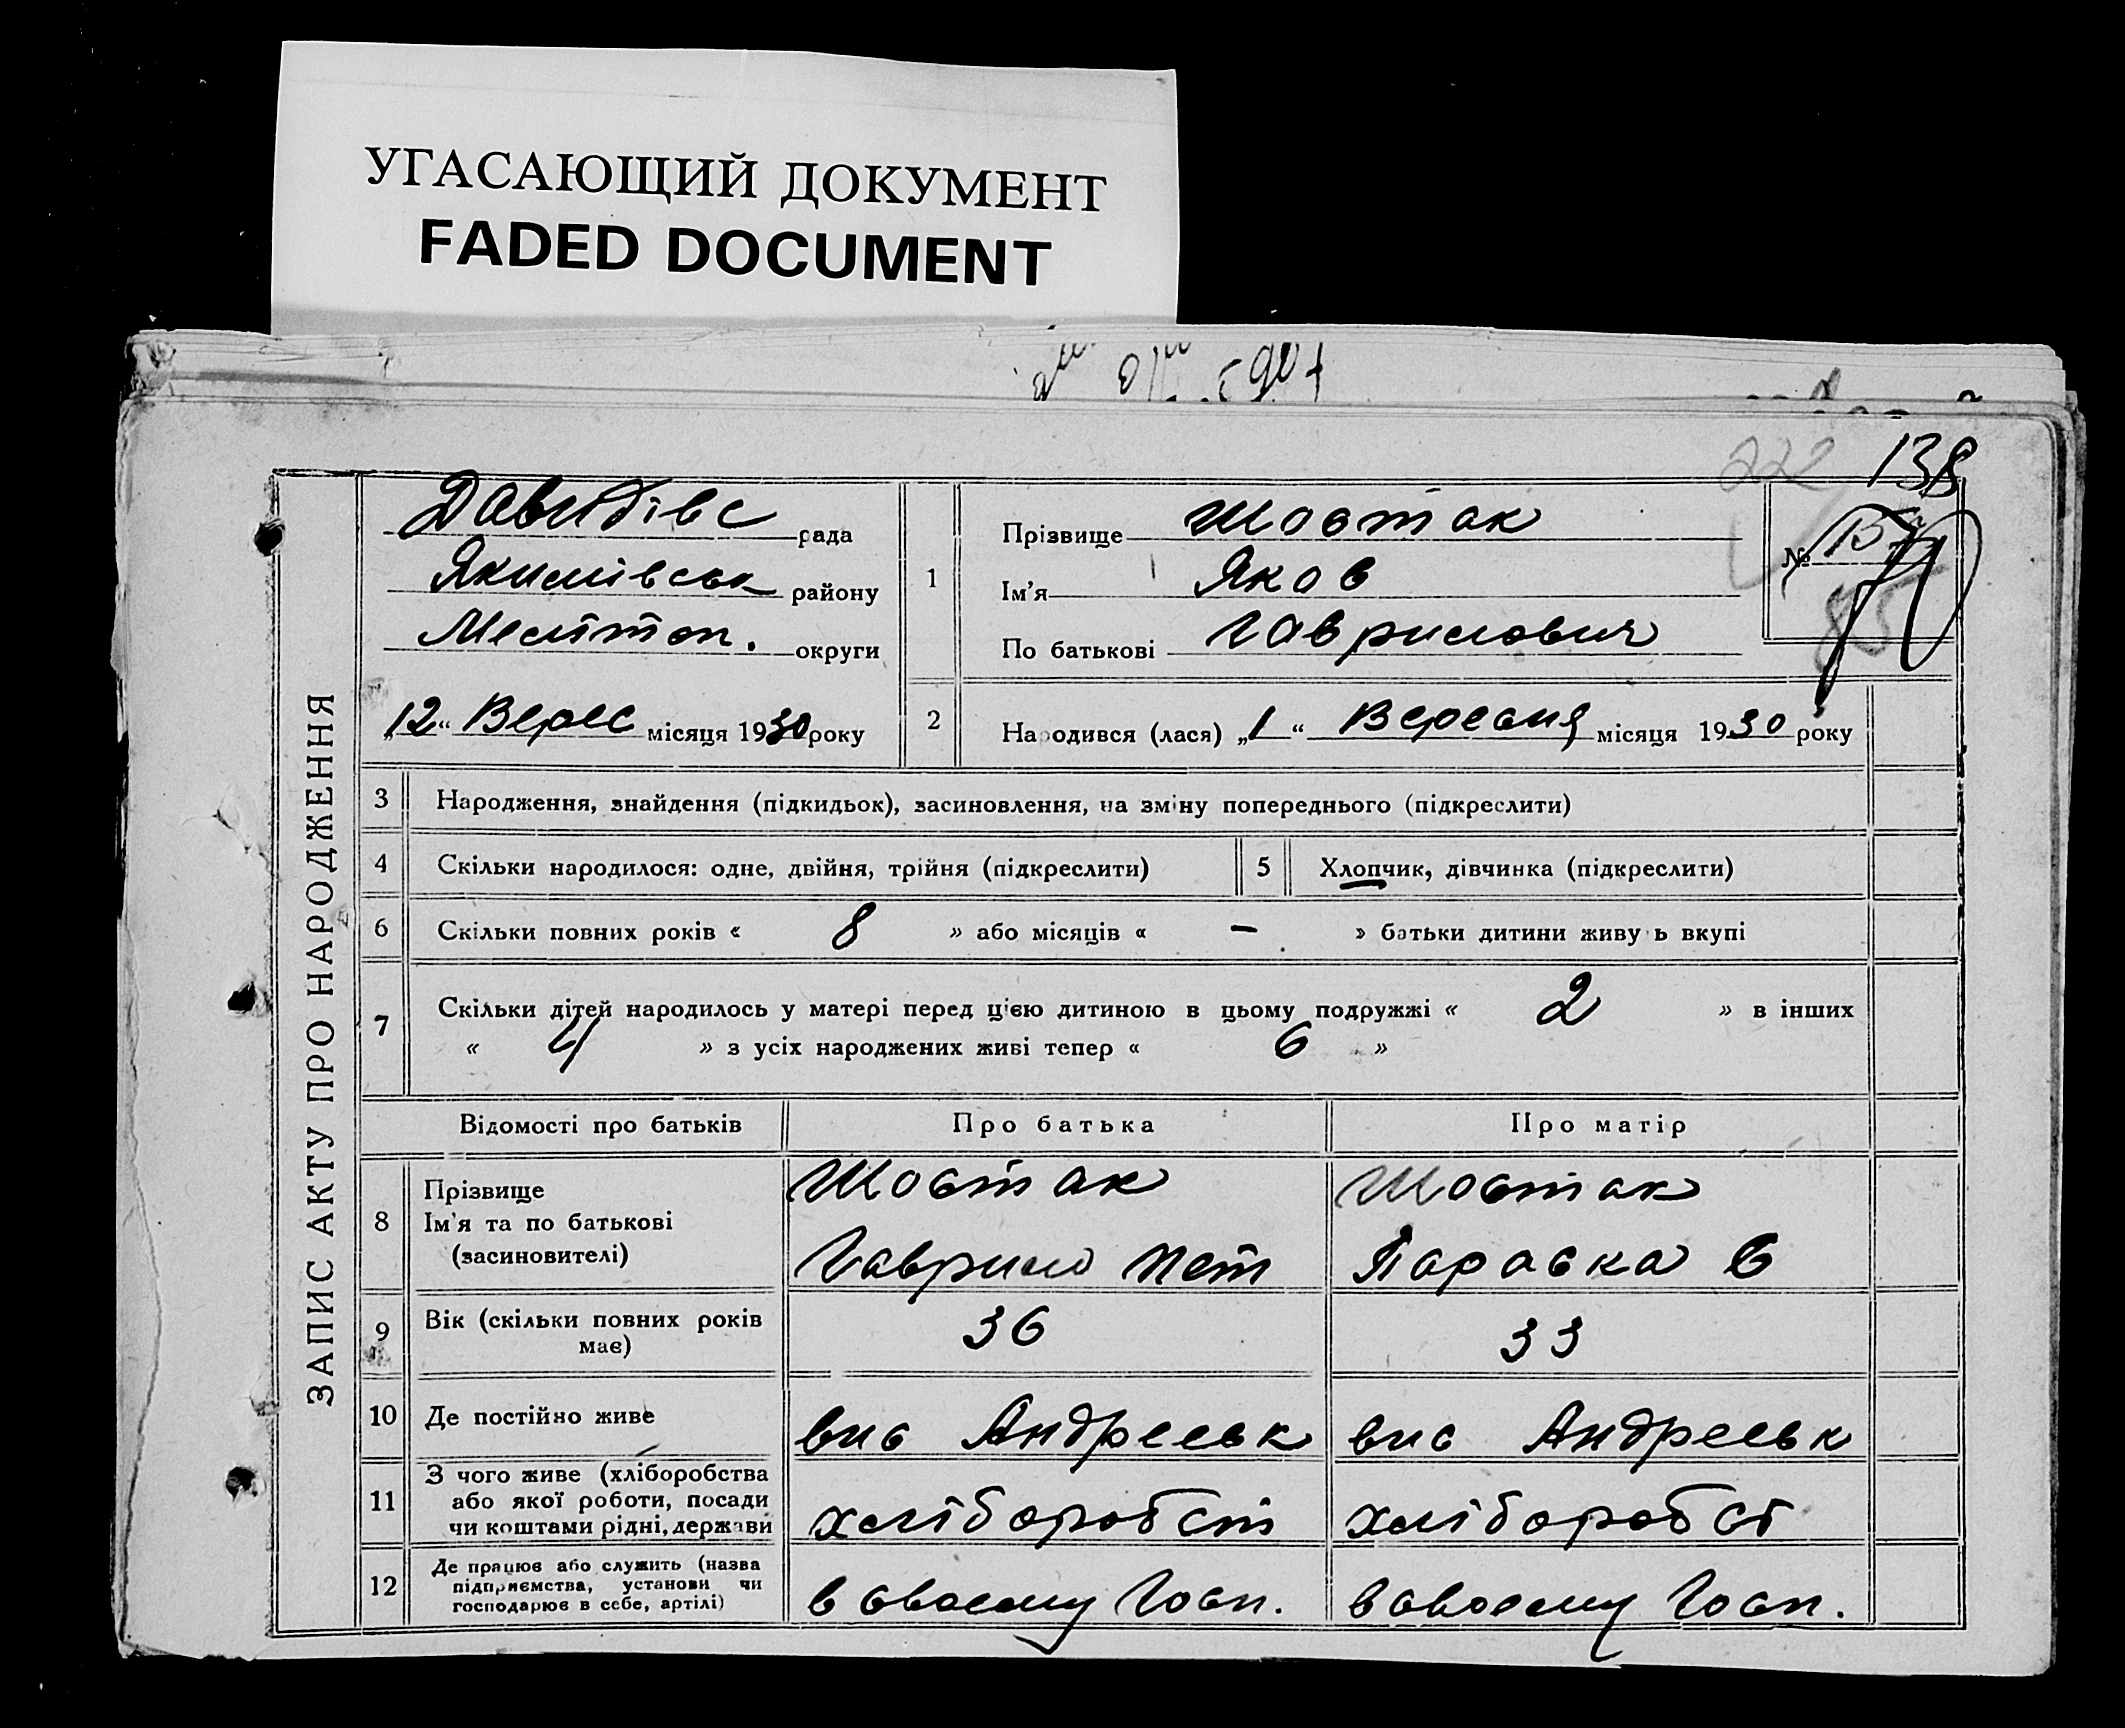 УГАСАЮЩИЙ ДОКУМЕНТ
FADED DOCUMENT
222 138
ЗАПИС АКТУ ПРО НАРОДЖЕННЯ
Давидівс рада
Якимівськ району
Мелітоп. округи
„12“ Верес місяця 1930 року
1
Прізвище Шостак
Ім'я Яков
По батькові Гаврилович
№
85
2 Народився (лася) „1“ Вересня місяця 1930 року
3 Народження, знайдення (підкидьок), засиновлення, на зміну попереднього (підкреслити)
4 Скільки народилося: одне, двійня, трійня (підкреслити) 5 Хлопчик, дівчинка (підкреслити)
6 Скільки повних років « 8 » або місяців « – » батьки дитини живуть вкупі
7 Скільки дітей народилось у матері перед цією дитиною в цьому подружжі « 2 » в інших
« 4 » з усіх народжених живі тепер « 6 »
Відомості про батьків Про батька Про матір
8 Прізвище Шостак Шостак
Ім'я та по батькові
(засиновителі) Гаврило Пет Параска Є
9 Вік (скільки повних років
має) 36 33
10 Де постійно живе вис Андреевк вис Андреевк
11 З чого живе (хліборобства
або якої роботи, посади
чи коштами рідні, держави хліборобст хліборобст
12 Де працює або служить (назва
підприємства, установи чи
господарює в себе, артілі) в своєму Госп. в своєму Госп.